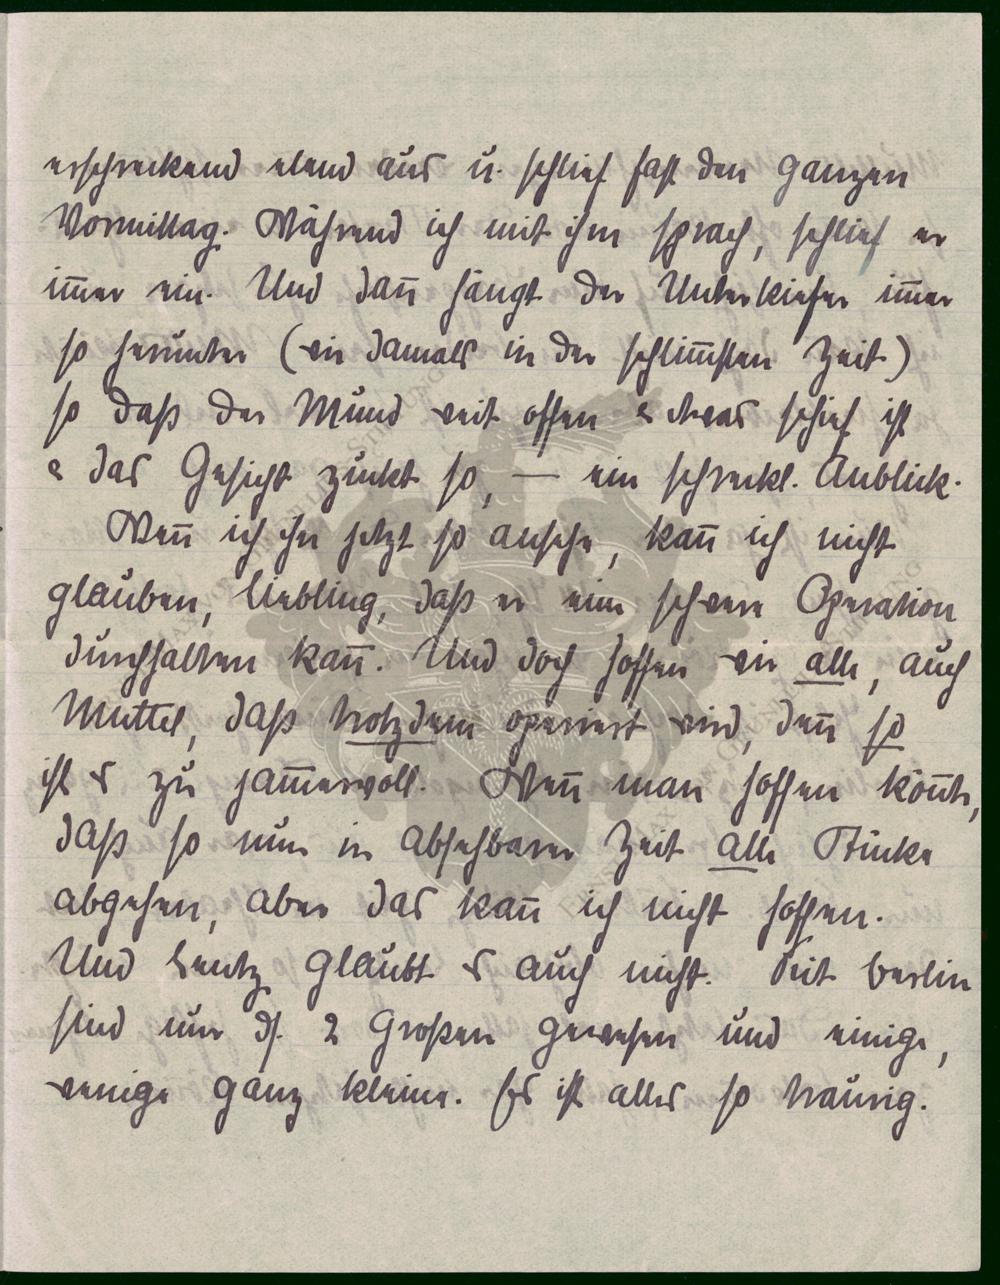 erschreckend elend aus u. schlief fast den ganzen
Vormittag. Während ich mit ihm sprach, schlief er
im̅er ein. Und dan̅ hängt der Unterkiefer im̅er
so herunter (wie damals in der schlim̅sten Zeit)
so daß der Mund weit offen & etwas schief ist
& das Gesicht zuckt so, — ein schreckl. Anblick.
Wen̅ ich ihn jetzt so ansehe, kan̅ ich nicht
glauben, Liebling, daß er eine schwere Operation
durchhalten kan̅. Und doch hoffen wir alle, auch
Muttel, daß trotzdem operiert wird, den̅ so
ist es zu jam̅ervoll. Wen̅ man hoffen kön̅te,
daß so nun in absehbarer Zeit alle Stücke
abgehen, aber das kan̅ ich nicht hoffen.
Und Lentz glaubt es auch nicht. Seit Berlin
sind nur ds. 2 Großen gewesen und einige,
wenige ganz kleine. Es ist alles so traurig.